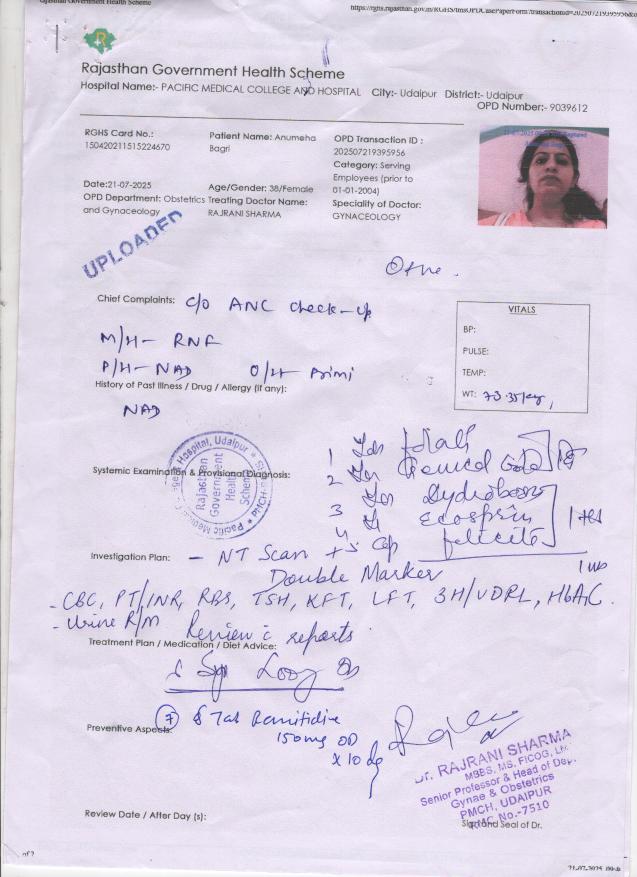 Rajasthan Government Health Scheme
https://rghs.rajasthan.gov.in/RGHS/tmsOPDCasePaperForm?transactionId=202507219395956&
Rajasthan Government Health Scheme
Hospital Name:- PACIFIC MEDICAL COLLEGE AND HOSPITAL City:- Udaipur District:- Udaipur
OPD Number:- 9039612
RGHS Card No.:
150420211515224670
Patient Name: Anumeha
Bagri
OPD Transaction ID :
202507219395956
Category: Serving
Employees (prior to
01-01-2004)
Date:21-07-2025
OPD Department: Obstetrics
and Gynaceology
Age/Gender: 38/Female
Treating Doctor Name:
RAJRANI SHARMA
Speciality of Doctor:
GYNACEOLOGY
UPLOADED
Chief Complaints: C/o ANC check-up
M/H- RNF
P/H- NAD O/H- Primi
History of Past Illness / Drug / Allergy (if any):
NAD
VITALS
BP:
PULSE:
TEMP:
WT: 73.35kg,
Systemic Examination & Provisional Diagnosis:
Rajasthan
Government
Health
Scheme
1
2
3
4 Ecosprin
5 Cap
Investigation Plan: - NT Scan +
Double Marker
- CBC, PT/INR, RBS, TSH, KFT, LFT, 3H/VDRL, HbA1C.
- Urine R/M Review c reports.
Treatment Plan / Medication / Diet Advice:
Syp
7 Tab Ranitidine
150mg OD
x 10 dy
Preventive Aspects:
Dr. RAJRANI SHARMA
MBBS, MS, FICOG,
Senior Professor & Head of Dep.
Gynae & Obstetrics
PMCH, UDAIPUR
RMC No.-7510
Sign and Seal of Dr.
Review Date / After Day (s):